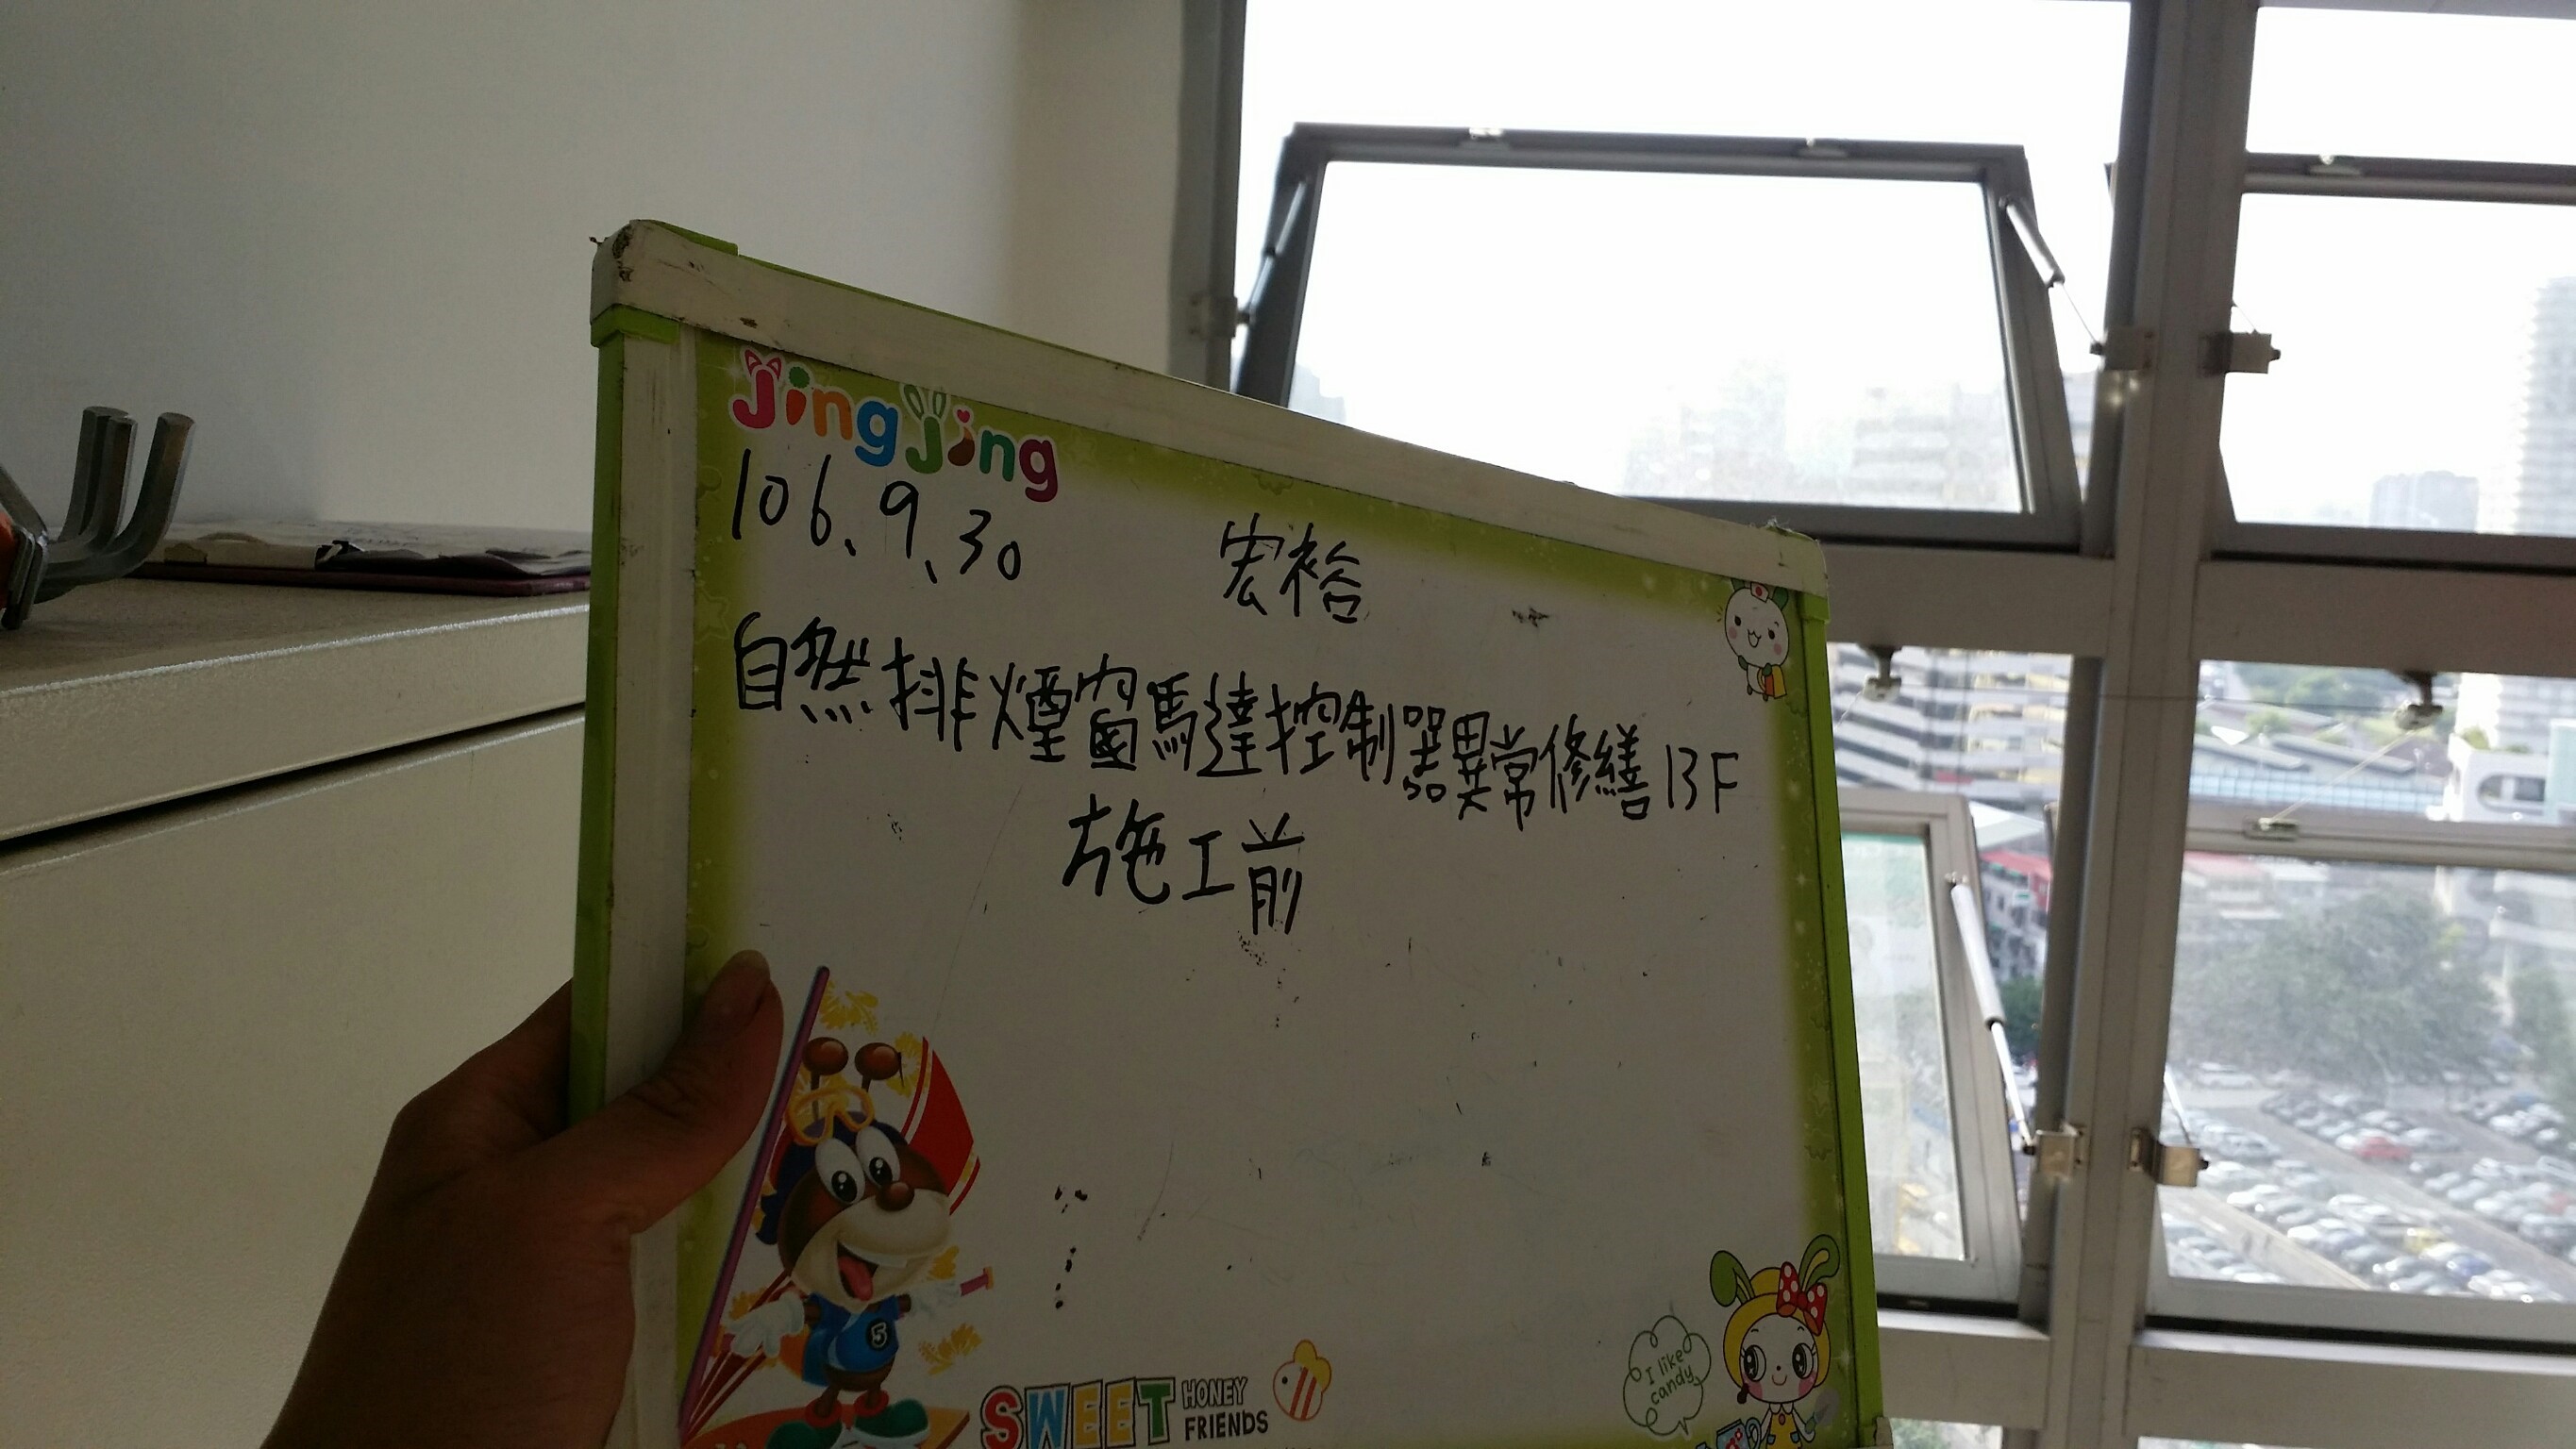 Jing Jing
106、9、30 宏裕
自然排煙窗馬達控制器異常修繕 13F
施工前
5
I like
candy
SWEET HONEY
FRIENDS